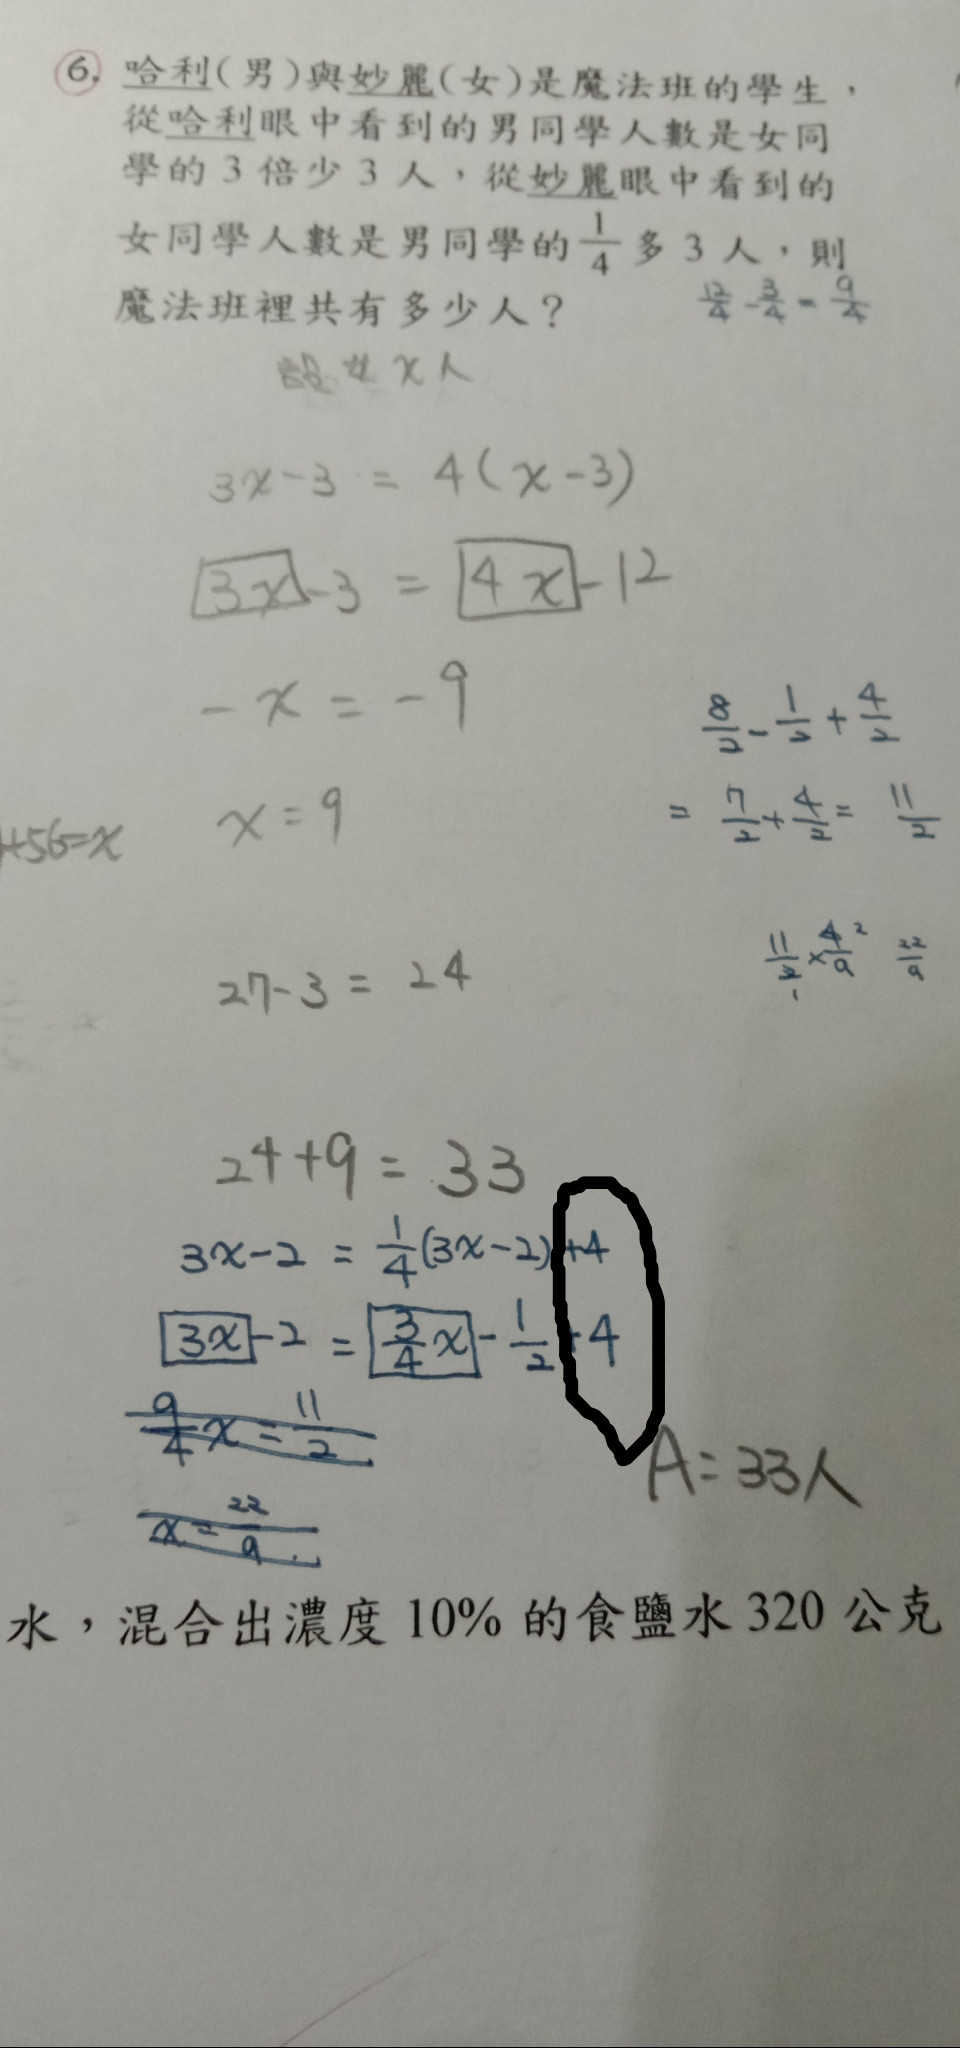 6. 哈利(男)與妙麗(女)是魔法班的學生，
從哈利眼中看到的男同學人數是女同
學的3倍少3人，從妙麗眼中看到的
女同學人數是男同學的1/4多3人，則
魔法班裡共有多少人？
12/4 - 3/4 = 9/4
設女x人
3x-3 = 4(x-3)
3x-3 = 4x-12
-x = -9
8/2 - 1/2 + 4/2
= 7/2 + 4/2 = 11/2
+56=x
x=9
11/2 × 4/9 2 22/9
1
27-3 = 24
24+9 = 33
3x-2 = 1/4(3x-2)+4
3x-2 = 3/4x - 1/2 + 4
9/4x = 11/2
A=33人
x = 22/9
水，混合出濃度10%的食鹽水320公克